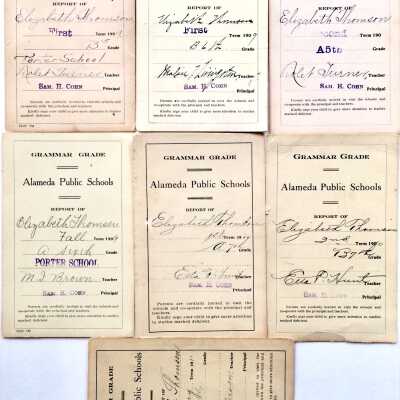 REPORT OF
Elizabeth Thomson
First Term 190
B5th Grade
Porter School
Rolet Turner Teacher
SAM. H. COHN
Principal
Parents are cordially invited to visit the schools and
co-operate with the principal and teachers.
Kindly urge your child to give more attention to studies
marked deficient.
REPORT OF
Elizabeth Thomson
First Term 1909
B 6th Grade
Teacher
SAM. H. COHN
Principal
Parents are cordially invited to visit the schools and
co-operate with the principal and teachers.
Kindly urge your child to give more attention to studies
marked deficient.
REPORT OF
Elizabeth Thomson
Second Term 190
A5th Grade
Rolet Turner Teacher
SAM. H. COHN
Principal
Parents are cordially invited to visit the schools and
co-operate with the principal and teachers.
Kindly urge your child to give more attention to studies
marked deficient.
GRAMMAR GRADE
Alameda Public Schools
REPORT OF
Elizabeth Thomson
Fall Term 1909
A sixth Grade
PORTER SCHOOL
M. J. Brown Teacher
SAM. H. COHN
Principal
Parents are cordially invited to visit the schools and
co-operate with the principal and teachers.
Kindly urge your child to give more attention to studies
marked deficient.
GRAMMAR GRADE
Alameda Public Schools
REPORT OF
Elizabeth Thomson
Term 19
A 7th Grade
Etta P. Hunt Teacher
SAM. H. COHN
Principal
Parents are cordially invited to visit the schools and
co-operate with the principal and teachers.
Kindly urge your child to give more attention to studies
marked deficient.
GRAMMAR GRADE
Alameda Public Schools
REPORT OF
Elizabeth Thomson
2nd Term 1910
B 7th Grade
Etta P. Hunt Teacher
SAM. H. COHN
Principal
Parents are cordially invited to visit the schools and
co-operate with the principal and teachers.
Kindly urge your child to give more attention to studies
marked deficient.
GRAMMAR GRADE
Alameda Public Schools
REPORT OF
Thomson
Term 191
Grade
Teacher
Principal